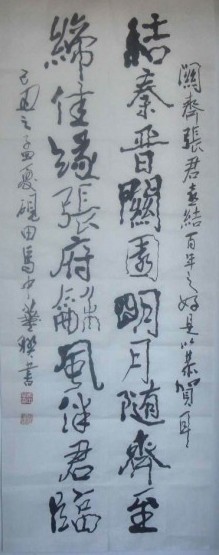 闕齊張君喜結百年之好是以恭賀耳
結秦晉闕園明月随齊至
締佳緣張府風伴君臨
己丑之孟夏硯田馬少華撰書